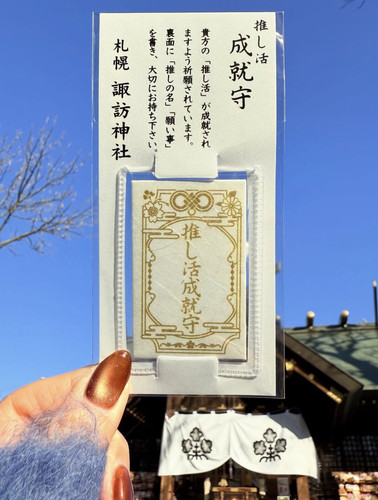 推し活
成就守
貴方の「推し活」が成就され
ますよう祈願されています。
裏面に「推しの名」「願い事」
を書き、大切にお持ち下さい。
札幌 諏訪神社
推し活成就守